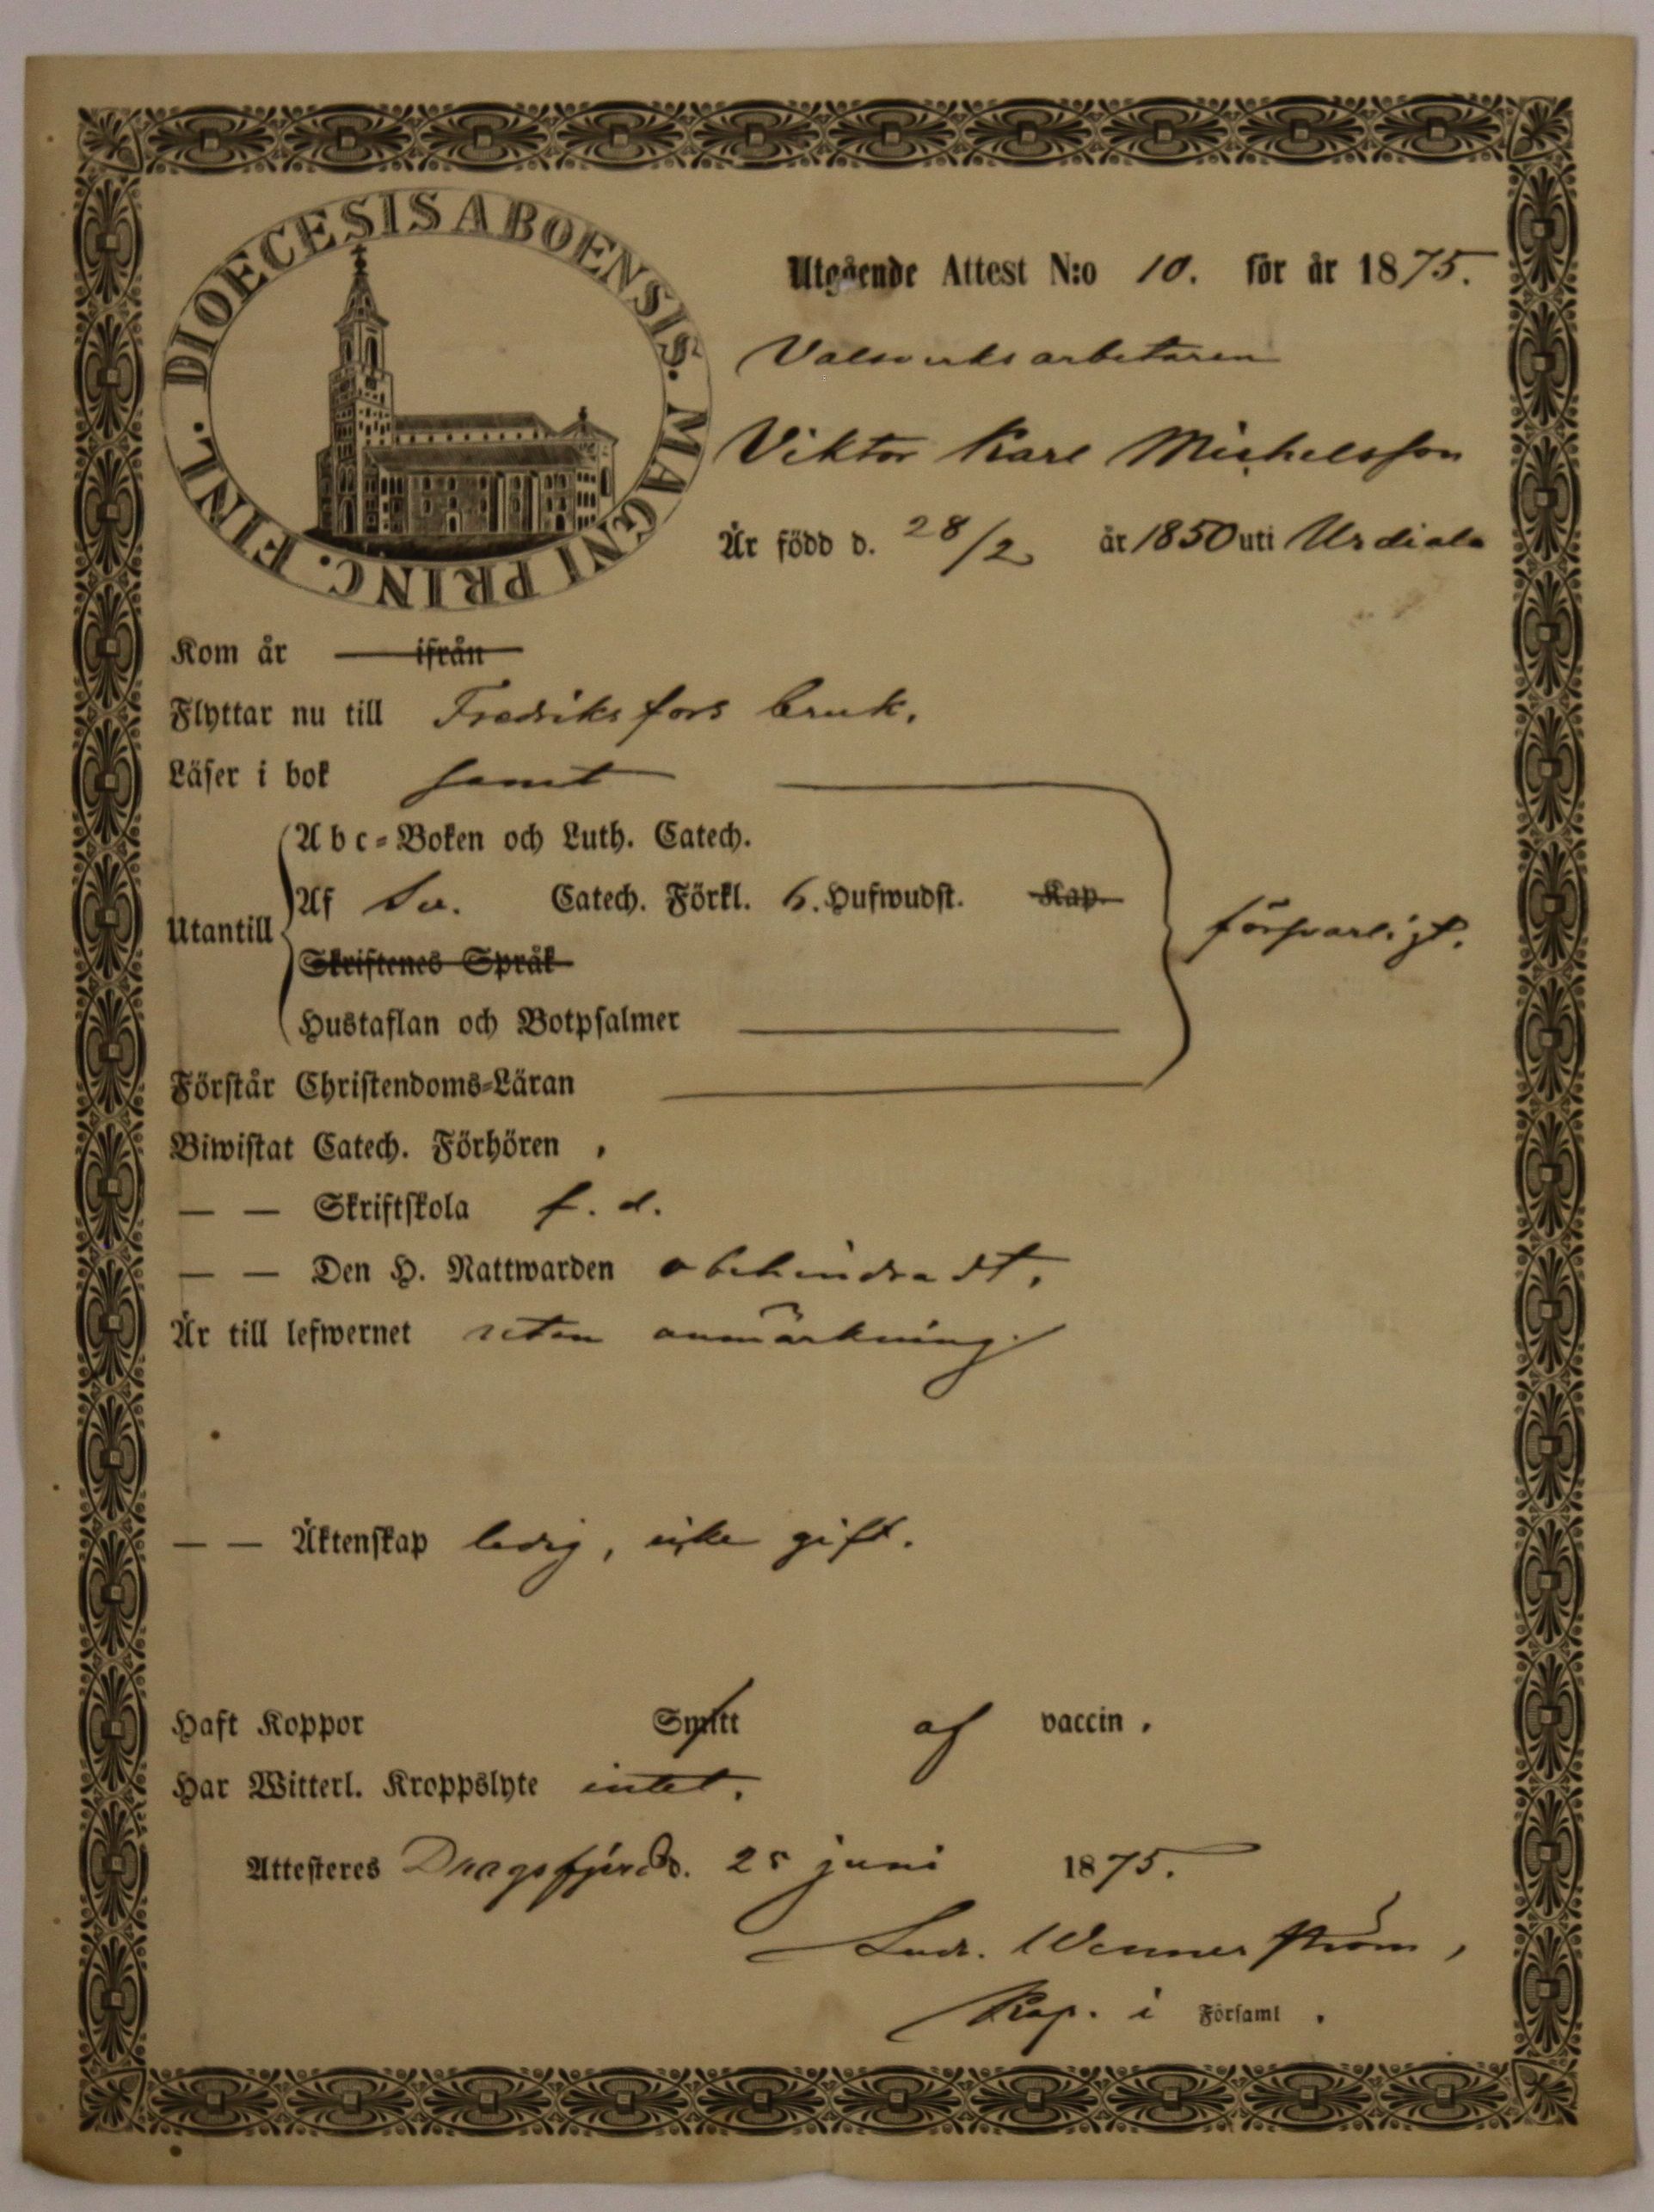 DIOECESIS ABOENSIS. MAGNI PRINC. FINL.
Utgående Attest N:o 10. för år 1875.
Valsverksarbetaren
Viktor Karl Michelsson
Är född d. 28/2 år 1850 uti Urdiala
Kom år ifrån
Flyttar nu till Fredriksfors bruk.
Läser i bok samt
Abc-Boken och Luth. Catech.
Utantill
Af Sv. Catech. Förkl. 6. Hufwudst. Kap.
försvarligt.
Skriftenes Språk
Hustaflan och Botpsalmer
Förstår Christendoms-Läran
Biwistat Catech. Förhören ,
— — Skriftskola f. d.
— — Den H. Nattwarden obehindradt.
Är till lefwernet utan anmärkning.
— — Äktenskap ledig, icke gift.
Haft Koppor Smitt af vaccin .
Har Witterl. Kroppslyte intet.
Attesteres Dragsfjerd d. 25 juni 1875.
Ludv. Wennerström,
Kap. i Församl .